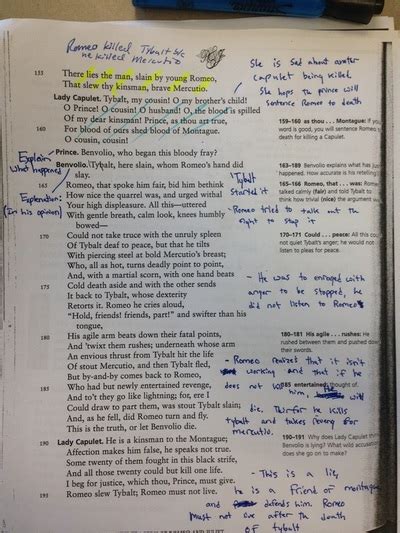 Romeo killed Tybalt b/c
he killed Mercutio
She is sad about another
Capulet being killed
She hops the prince will
sentence Romeo to death
155 There lies the man, slain by young Romeo,
That slew thy kinsman, brave Mercutio.
Lady Capulet. Tybalt, my cousin! O my brother's child!
O Prince! O cousin! O husband! O, the blood is spilled
Of my dear kinsman! Prince, as thou art true,
160 For blood of ours shed blood of Montague.
O cousin, cousin!
159–160 as thou . . . Montague: If your
word is good, you will sentence Romeo to
death for killing a Capulet.
Prince. Benvolio, who began this bloody fray?
Explain
what happened
Benvolio. Tybalt, here slain, whom Romeo's hand did
slay.
165 Romeo, that spoke him fair, bid him bethink
How nice the quarrel was, and urged withal
Your high displeasure. All this—uttered
With gentle breath, calm look, knees humbly
bowed—
Explanation:
(In his opinion)
Tybalt
Started it
- Romeo tried to talk out the
fight to stop it
163–189 Benvolio explains what has just
happened. How accurate is his retelling?
165–166 Romeo, that . . . was: Romeo
talked calmly (fair) and told Tybalt to
think how trivial (nice) the argument was.
170 Could not take truce with the unruly spleen
Of Tybalt deaf to peace, but that he tilts
With piercing steel at bold Mercutio's breast;
Who, all as hot, turns deadly point to point,
And, with a martial scorn, with one hand beats
175 Cold death aside and with the other sends
It back to Tybalt, whose dexterity
Retorts it. Romeo he cries aloud,
"Hold, friends! friends, part!" and swifter than his
tongue,
170–171 Could . . . peace: He could
not quiet Tybalt's anger; he would not
listen to pleas for peace.
- He was to enraged with
anger to be stopped, he
did not listen to Romeo
180 His agile arm beats down their fatal points,
And 'twixt them rushes; underneath whose arm
An envious thrust from Tybalt hit the life
Of stout Mercutio, and then Tybalt fled,
But by-and-by comes back to Romeo,
185 Who had but newly entertained revenge,
And to't they go like lightning; for, ere I
Could draw to part them, was stout Tybalt slain;
And, as he fell, did Romeo turn and fly.
This is the truth, or let Benvolio die.
180–181 His agile . . . rushes: He
rushed between them and pushed down
their swords.
- Romeo realized that it isn't
working and that if he
does not kill him, he will
die. Therfor he kills
tybalt and takes revenge for
mercutio.
185 entertained: thought of.
190 Lady Capulet. He is a kinsman to the Montague;
Affection makes him false, he speaks not true.
Some twenty of them fought in this black strife,
And all those twenty could but kill one life.
I beg for justice, which thou, Prince, must give.
195 Romeo slew Tybalt; Romeo must not live.
190–191 Why does Lady Capulet think
Benvolio is lying? What wild accusation
does she go on to make?
- This is a lie,
he is a friend of montague
and defends him. Romeo
must not live after the death
of tybalt